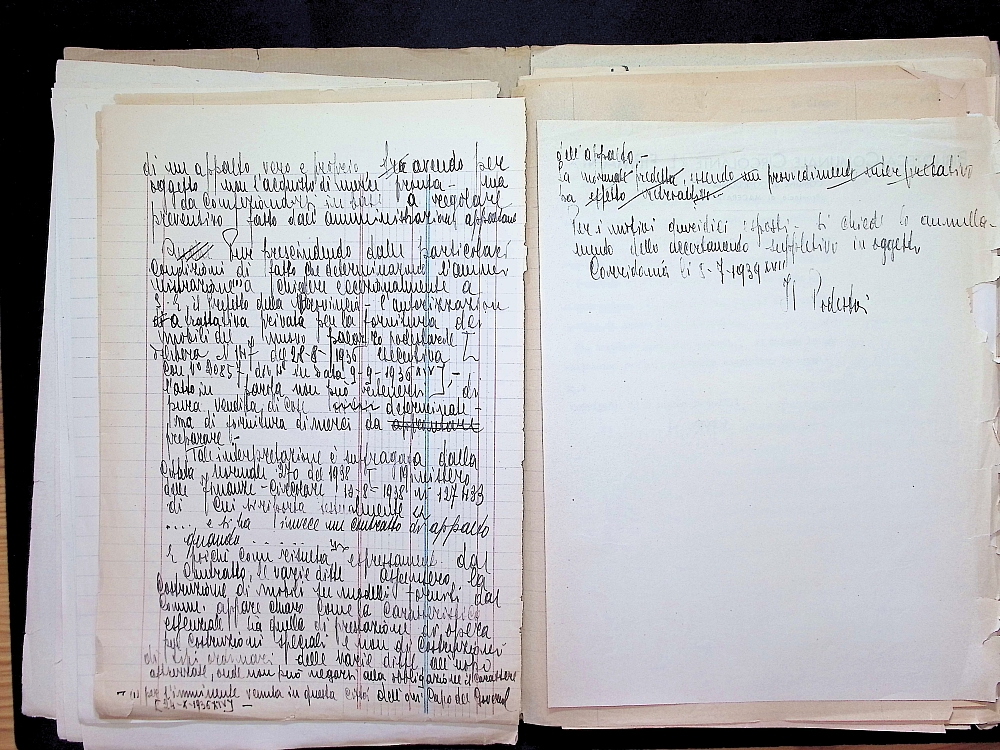 di un appalto vero e proprio avendo per
oggetto non l'acquisto di merce pronta - ma
da confezionarsi in base a regolare
preventivo fatto dall'amministrazione appaltante
Pur prescindendo dalle particolari
condizioni di fatto che determinarono l'ammi
nistrazione a chiedere eccezionalmente a
S. E. il Prefetto della Provincia - l'autorizzazione
a trattativa privata per la fornitura dei
mobili del nuovo palazzo podestarile [
delibera N 147 del 28-8-1936 esecutiva
con N° 20857 div. in data 9-9-1936 XIV], -
l'atto in parola non può ritenersi di
pura vendita di cose determinate -
ma di fornitura di merci da appaltare
preparare -
Tale interpretazione è suffragata dalla
citata normale 270 del 1938 - Ministero
delle Finanze - Circolare 12-8-1938 n° 127433
di cui si riporta testualmente
.... e si ha invece un contratto di appalto
quando ......
E poiché come risulta espressamente dal
contratto, le varie ditte assunsero la
costruzione di mobili su modelli forniti dal
Comune appare chiaro come la caratteristica
essenziale sia quella di prestazione di opera
per costruzioni speciali e non di costruzioni
di tipi ordinari delle varie ditte all'uopo
attrezzate, onde non può negarsi alla obbligazione il carattere
(1) per l'imminente venuta in questa città dell'on. Capo del Governo
[24-X-1936 XIV] -
dell'appalto. -
La normale predetta, essendo un provvedimento interpretativo
ha effetto retroattivo. -
Per i motivi giuridici esposti - si chiede lo annulla-
mento dello accertamento suppletivo in oggetto
Corridonia li 5-7-1939 XVII
Il Podestà